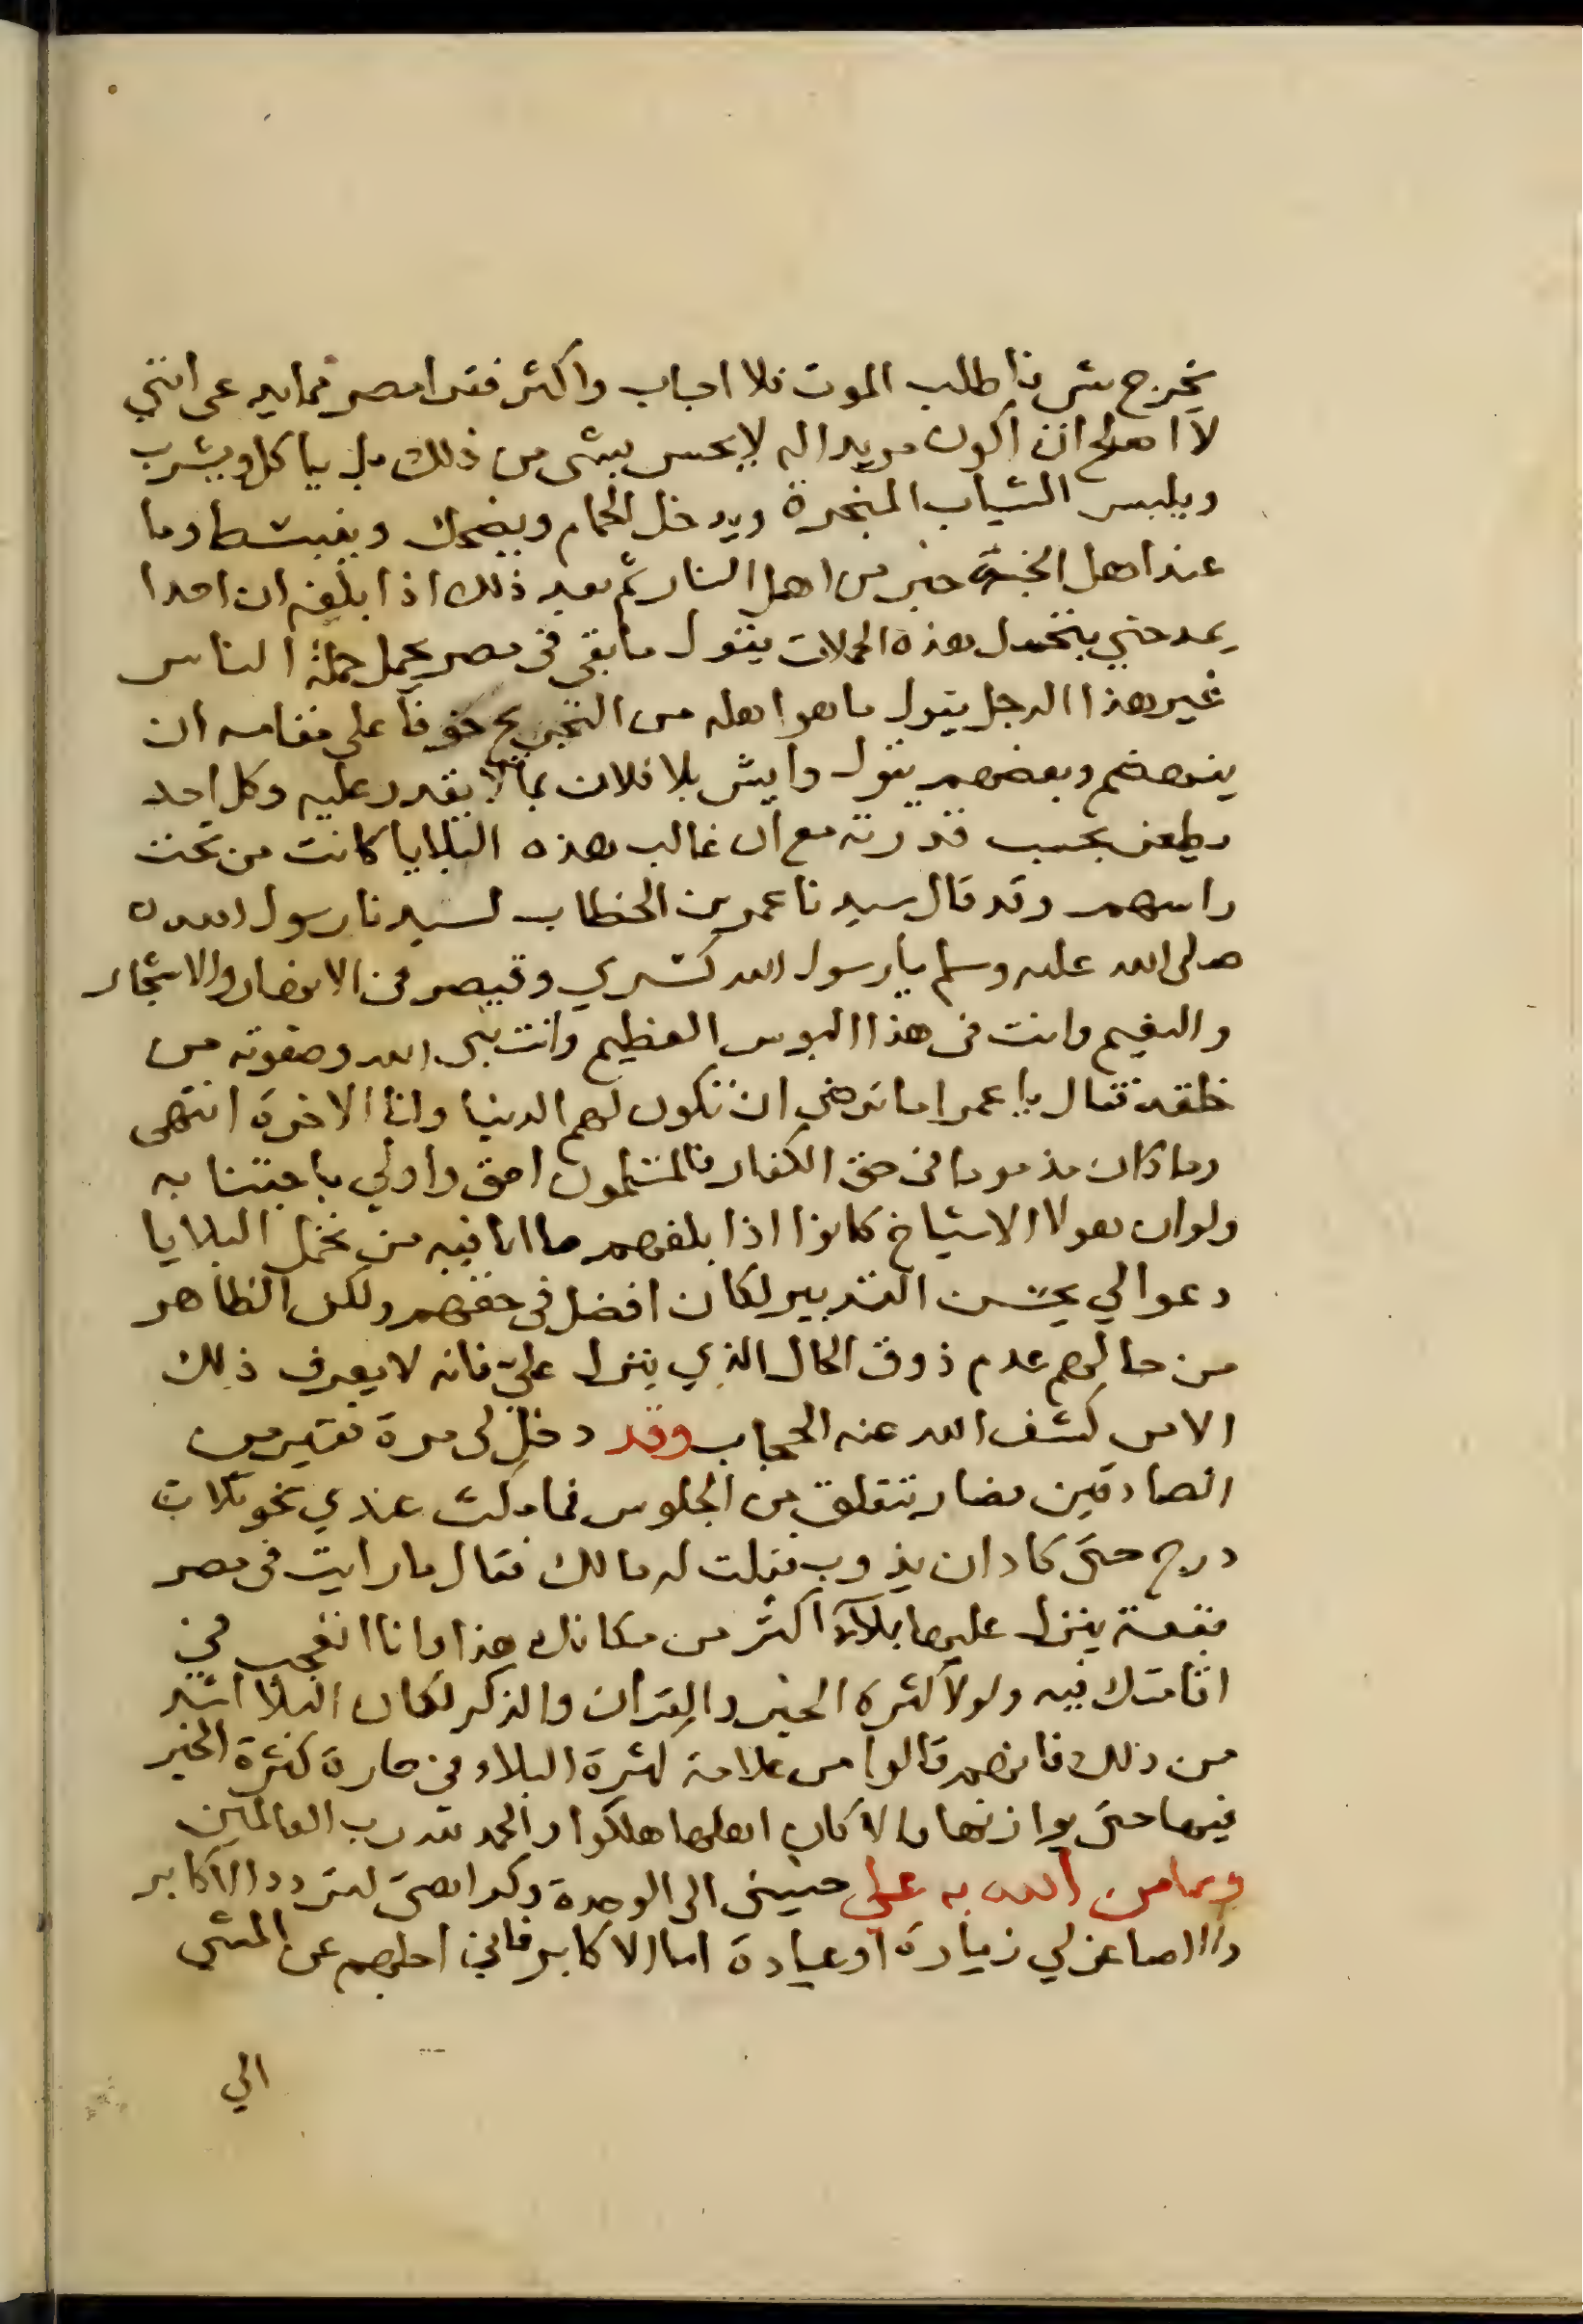 يخرج مني فاطلب الموت فلا اجاب واكثر فقرا مصر ممايدعى انني
لا اصلح ان اكون مريدا له لا يحس بشى من ذلك بل ياكل ويشرب
ويلبس الثياب المبخرة ويدخل الحمام ويضحك وينبسط وما
عند اهل الجنة خبر من اهل النار ثم بعد ذلك اذا بلغه ان احدا
يمدحني بتحمل هذه الحملات يقول ما بقي في مصر يحمل حملة الناس
غير هذا الرجل يقول ما هو اهله من التجريح خوفا على مقامه ان
ينهضم وبعضهم يقول وايش بلا فلان بما لا يقدر عليه وكل احد
يطعن بحسب قدرته مع ان غالب هذه البلايا كانت من تحت
راسهم وقد قال سيدنا عمر بن الخطاب لسيدنا رسول الله
صلى الله عليه وسلم يا رسول الله كسري وقيصر في الانهار والاشجار
والنعيم وانت في هذا البوس العظيم وانت نبي الله وصفوته من
خلقه فقال يا عمر اما ترضي ان تكون لهم الدنيا ولنا الاخرة انتهى
وما كان مذموما في حق الكفار فالمسلمون احق واولي باجتنابه
ولو ان هولا الاشياخ كانوا اذا بلغهم ما انا فيه من تحمل البلايا
دعوا لي بحسن التدبير لكان افضل في حقهم ولكن الظاهر
من حالهم عدم ذوق الحال الذي ينزل علي فانه لا يعرف ذلك
الا من كشف الله عنه الحجاب وقد دخل لي مرة فقير من
الصادقين فصار يتقلق من الجلوس فما مكث عندي نحو ثلاث
درج حتى كاد ان يذوب فقلت له مالك فقال ما رايت في مصر
بقعة ينزل عليها بلاء اكثر من مكانك هذا وانا اتعجب في
اقامتك فيه ولولا كثرة الخير والقران والذكر لكان البلا اشد
من ذلك فانهم قالوا من علامة كثرة البلاء في حارة كثرة الخير
فيها حتى يوازنها والا كان اهلها هلكوا والحمد لله رب العالمين
ومما من الله به علي حبيتي الى الوحدة وكراهتي لتردد الاكابر
والاصاغر لي زيارة او عيادة اما الاكابر فاني اجلهم عن المشي
الي